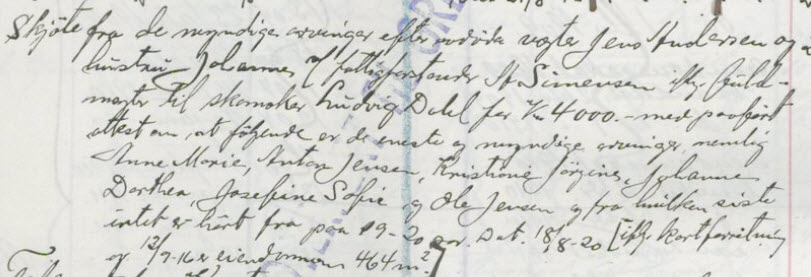 Skjöte fra de myndige arvinger efter avdöde vægter Jens Andersen og
hustru Johanne, v/ fattigforstander A. Simensen ifg. fuld-
magter til skomaker Ludvig Dahl for kr 4000.- med paaført
attest om, at følgende er de eneste og myndige arvinger, nemlig
Anne Marie, Anton Jensen, Kristiane Jörgine, Johanne
Dorthea, Josefine Sofie og Ole Jensen og fra hvilken siste
intet er hört fra paa 19-20 aar. Dat. 18/8-20 [ifg. kartforretning
av 12/9-16 er eiendommen 464 m².]